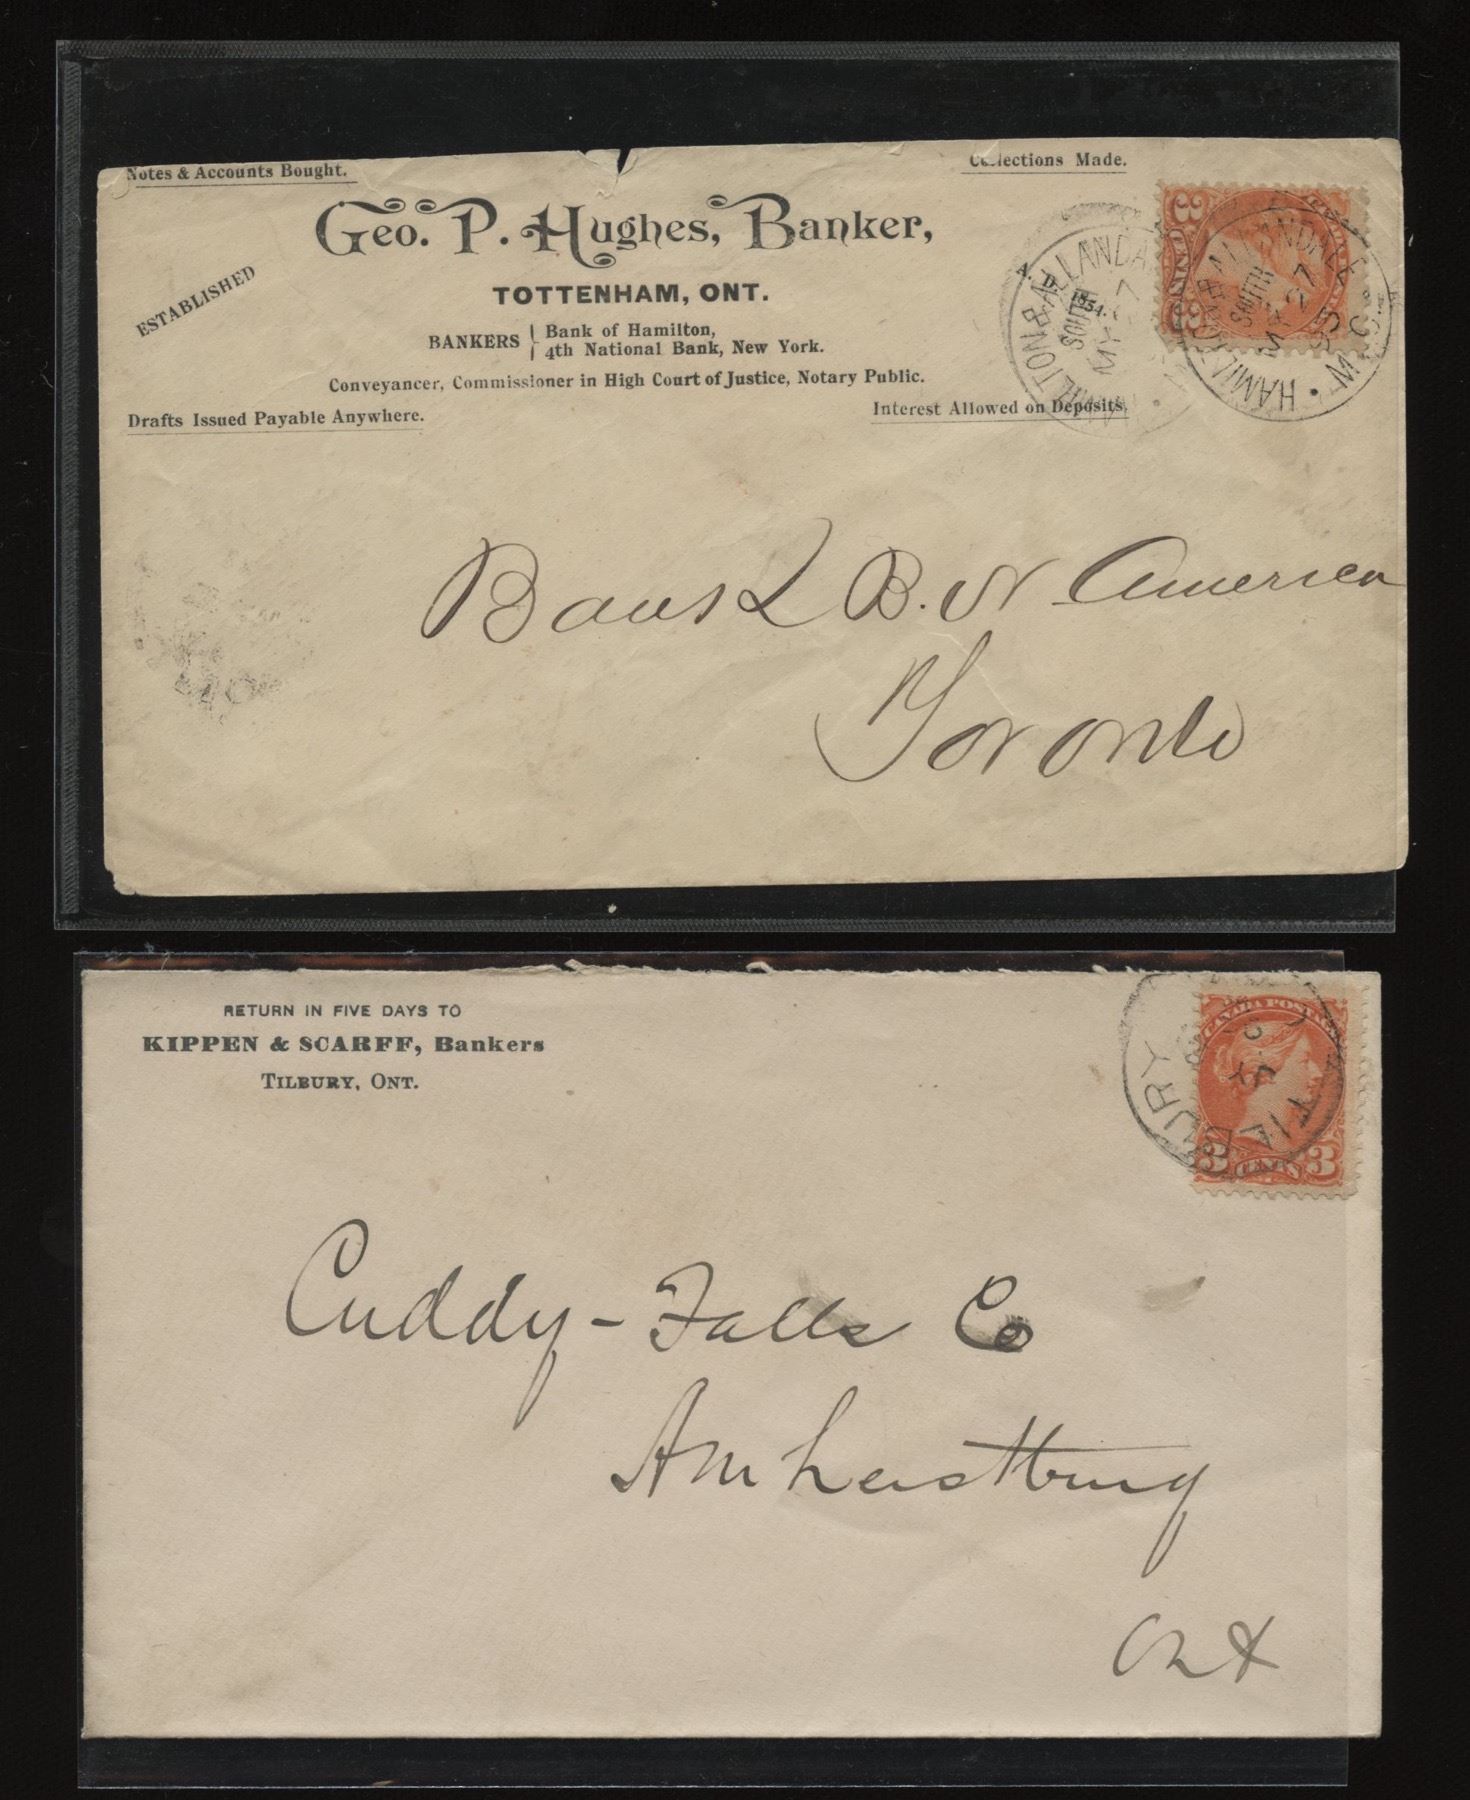 Notes & Accounts Bought.
Collections Made.
Geo. P. Hughes, Banker,
ESTABLISHED
A. D. 1854.
TOTTENHAM, ONT.
BANKERS { Bank of Hamilton,
4th National Bank, New York.
Conveyancer, Commissioner in High Court of Justice, Notary Public.
Drafts Issued Payable Anywhere.
Interest Allowed on Deposits.
HAMILTON & ALLANDALE
SOUTH
MY
HAMILTON & ALLANDALE M.C.
SOUTH
MY 27
95
3 CENTS 3
Bank B. N America
Toronto
RETURN IN FIVE DAYS TO
KIPPEN & SCARFF, Bankers
TILBURY, ONT.
CANADA POSTAGE
TILBURY
3 CENTS 3
Cuddy-Falls Co
Amherstburg
Ont